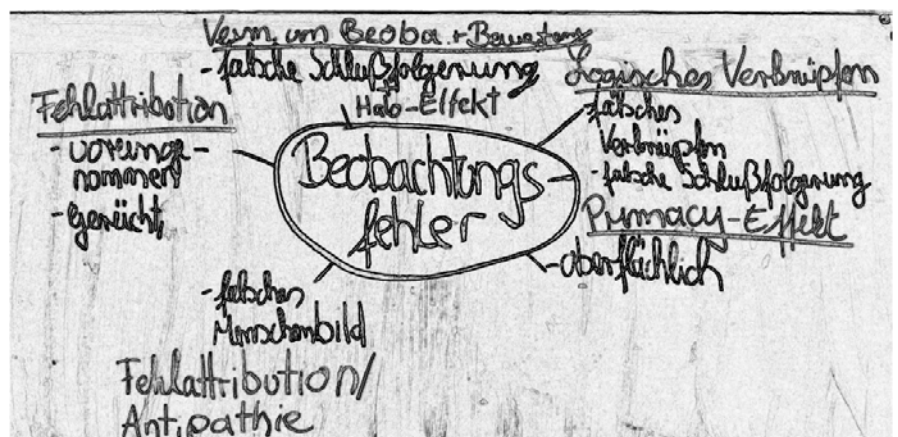 Verm. von Beoba. + Bewertung
- falsche Schlußfolgerung
Halo-Effekt
Fehlattribution
- voreinge-
nommen
- Gerücht
Beobachtungs-
fehler
Logisches Verknüpfen
- falsches
Verknüpfen
- falsche Schlußfolgerung
Primacy-Effekt
- oberflächlich
- falsches
Menschenbild
Fehlattribution/
Antipathie